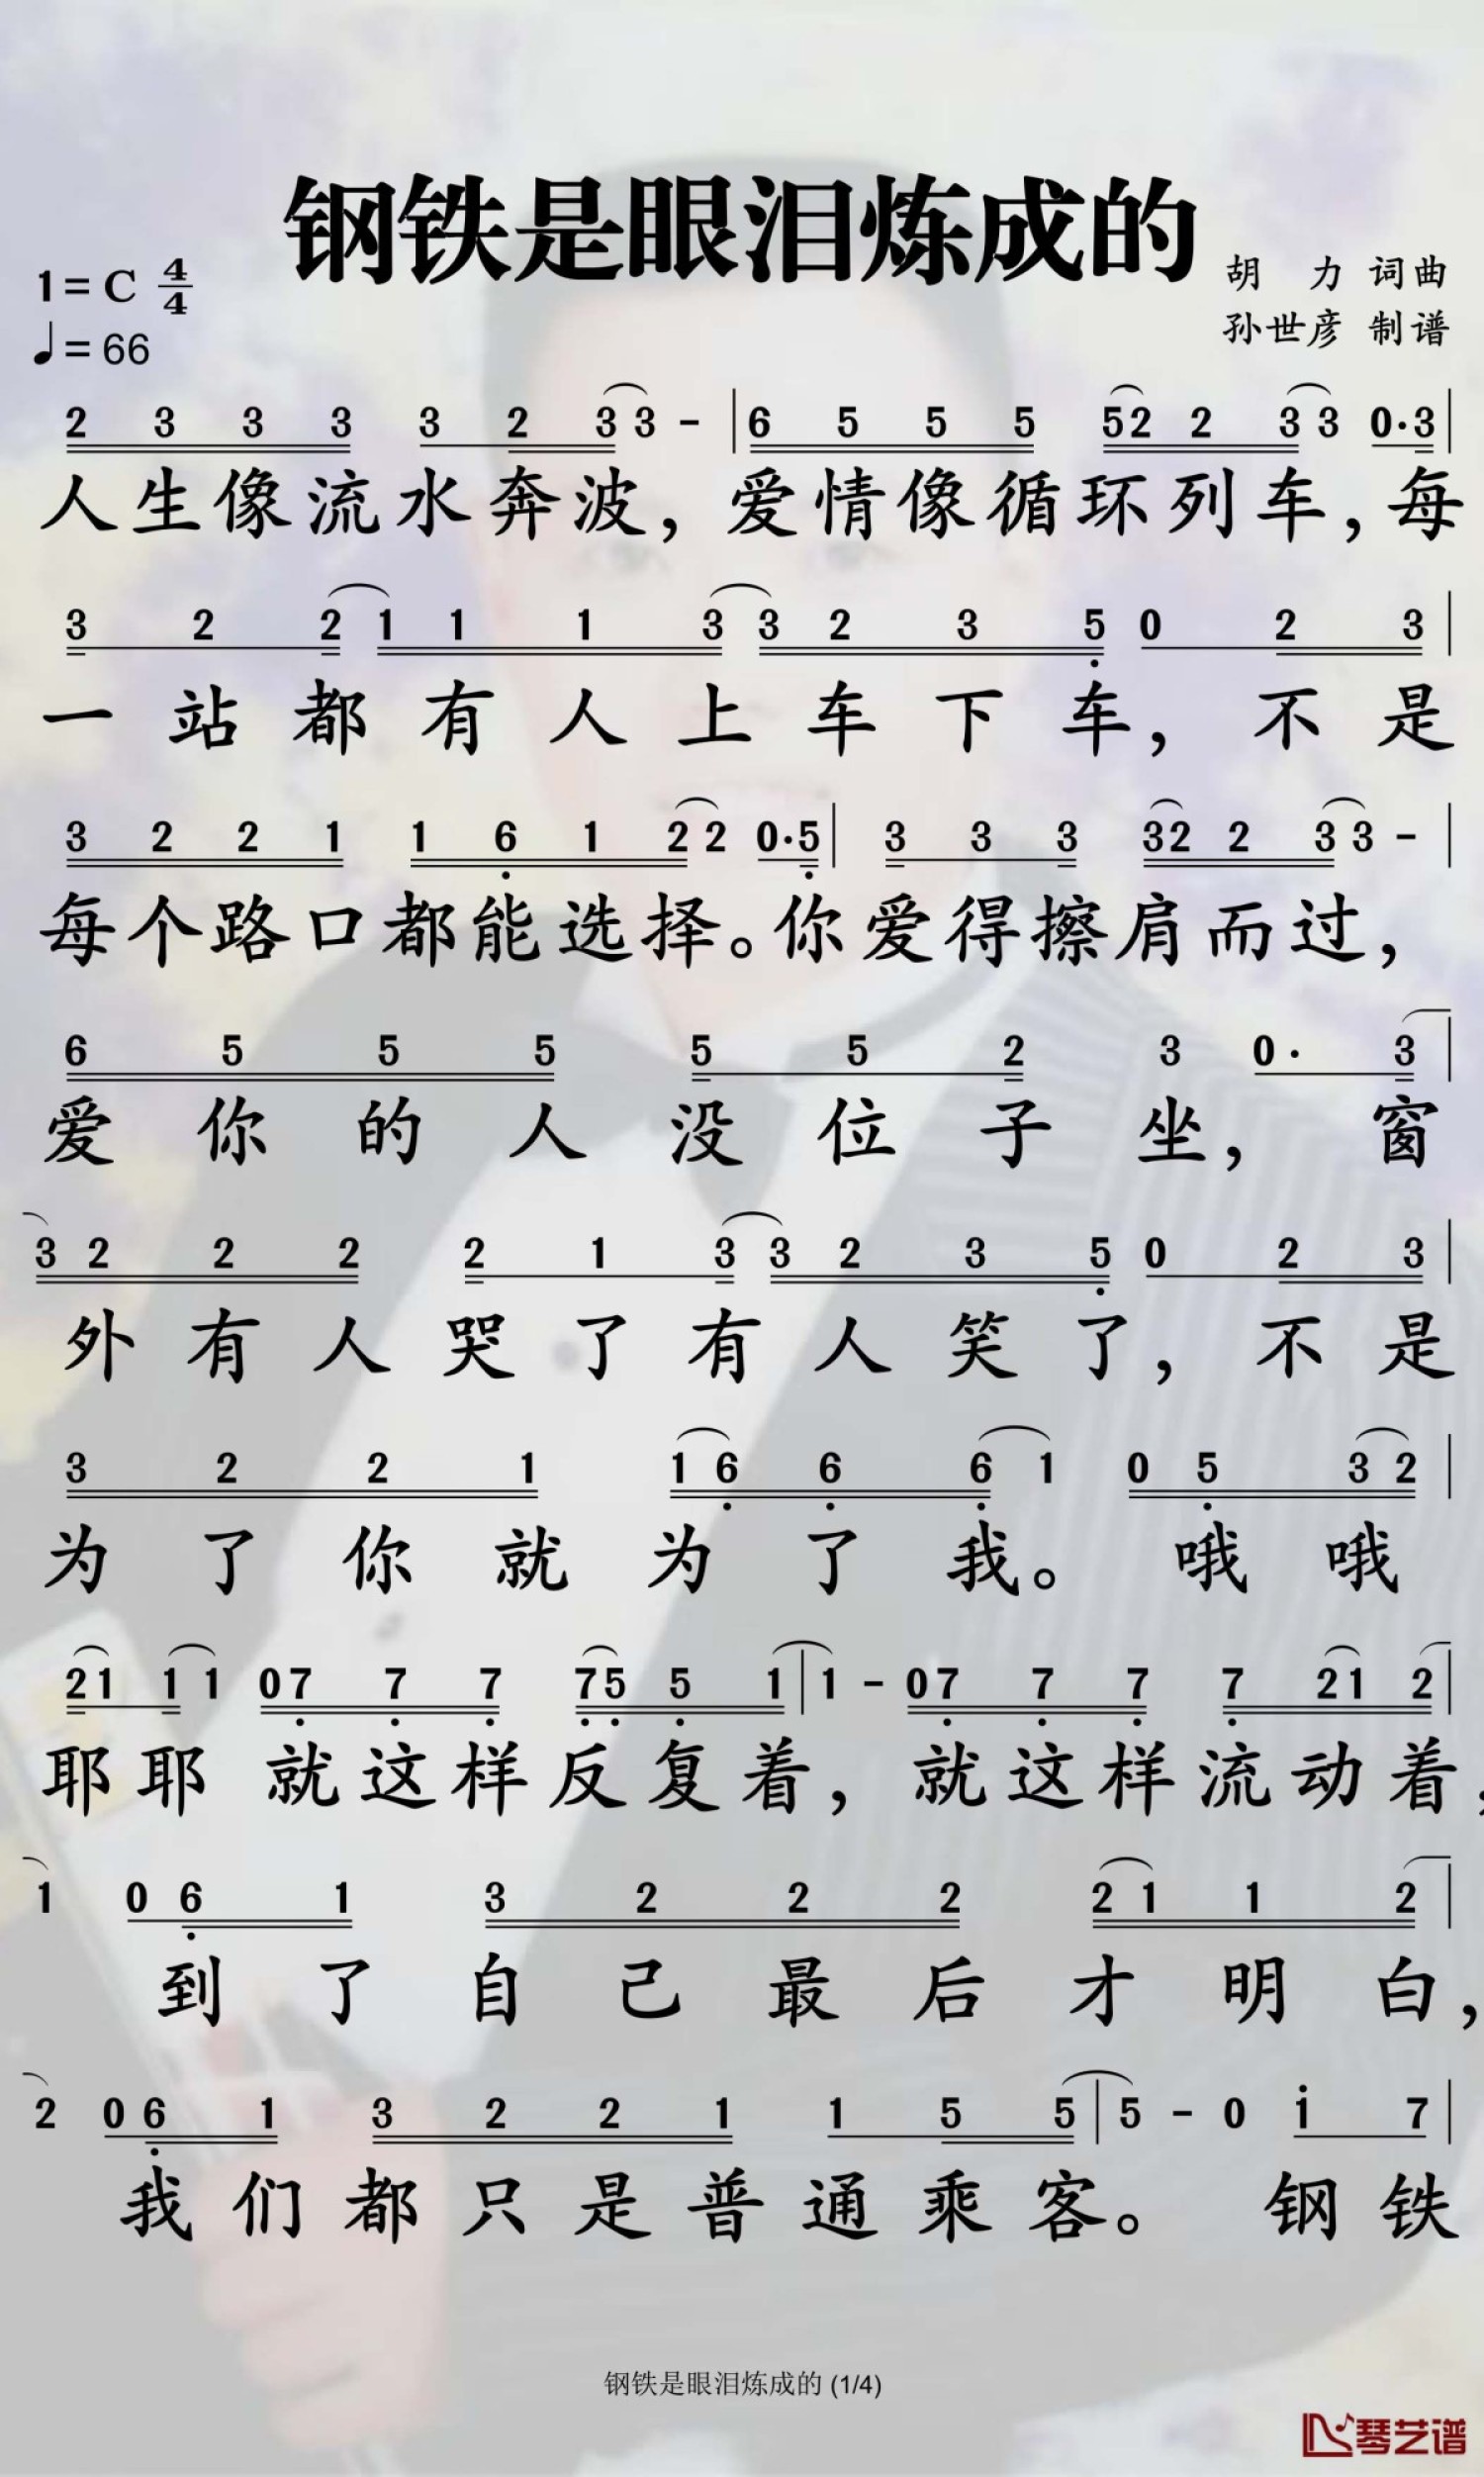 钢铁是眼泪炼成的
1=C 4/4
♩=66
胡 力 词曲
孙世彦 制谱
2 3 3 3 3 2 3 3 - | 6 5 5 5 52 2 3 3 0·3 |
人生像流水奔波，爱情像循环列车，每
3 2 2 1 1 1 3 3 2 3 5̣ 0 2 3 |
一站都有人上车下车，不是
3 2 2 1 1 6̣ 1 2 2 0·5̣ | 3 3 3 32 2 3 3 - |
每个路口都能选择。你爱得擦肩而过，
6 5 5 5 5 5 2 3 0· 3 |
爱你的人没位子坐，窗
3 2 2 2 2 1 3 3 2 3 5̣ 0 2 3 |
外有人哭了有人笑了，不是
3 2 2 1 1 6̣ 6̣ 6̣ 1 0 5̣ 3 2 |
为了你就为了我。哦哦
21 1 1 07̣ 7̣ 7̣ 7̣5̣ 5̣ 1 | 1 - 07̣ 7̣ 7̣ 7̣ 21 2 |
耶耶 就这样反复着，就这样流动着，
1 0 6̣ 1 3 2 2 2 2 1 1 2 |
到了自己最后才明白，
2 0 6̣ 1 3 2 2 1 1 5 5 | 5 - 0 1̇ 7 |
我们都只是普通乘客。钢铁
钢铁是眼泪炼成的 (1/4)
琴艺谱